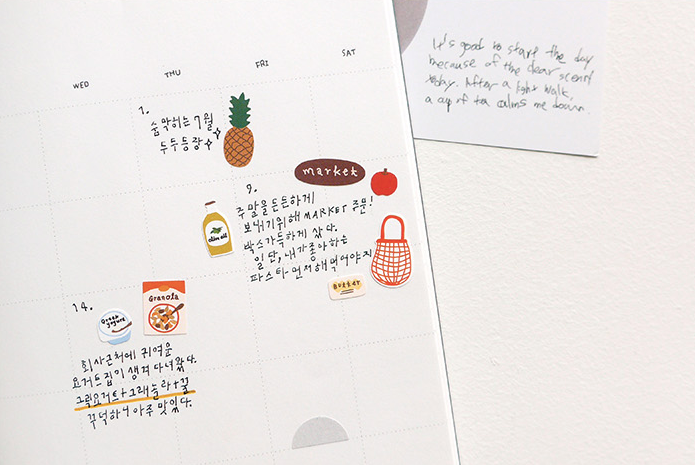 WED
THU
FRI
SAT
1.
숨막히는 7월
두두등장
market
9.
주말을 든든하게
보내기위해 MARKET 주문!
박스가득하게 샀다.
일단, 내가좋아하는
파스타먼저해먹어야지
olive oil
Butter
14.
Greek
yogurt
Granola
회사근처에 귀여운
요거트집이 생겨 다녀왔다.
그릭요거트+그래놀라+꿀
꾸덕하니 아주 맛있다.
It's good to start the day
because of the clear scent
today. After a light walk,
a cup of tea calms me down.